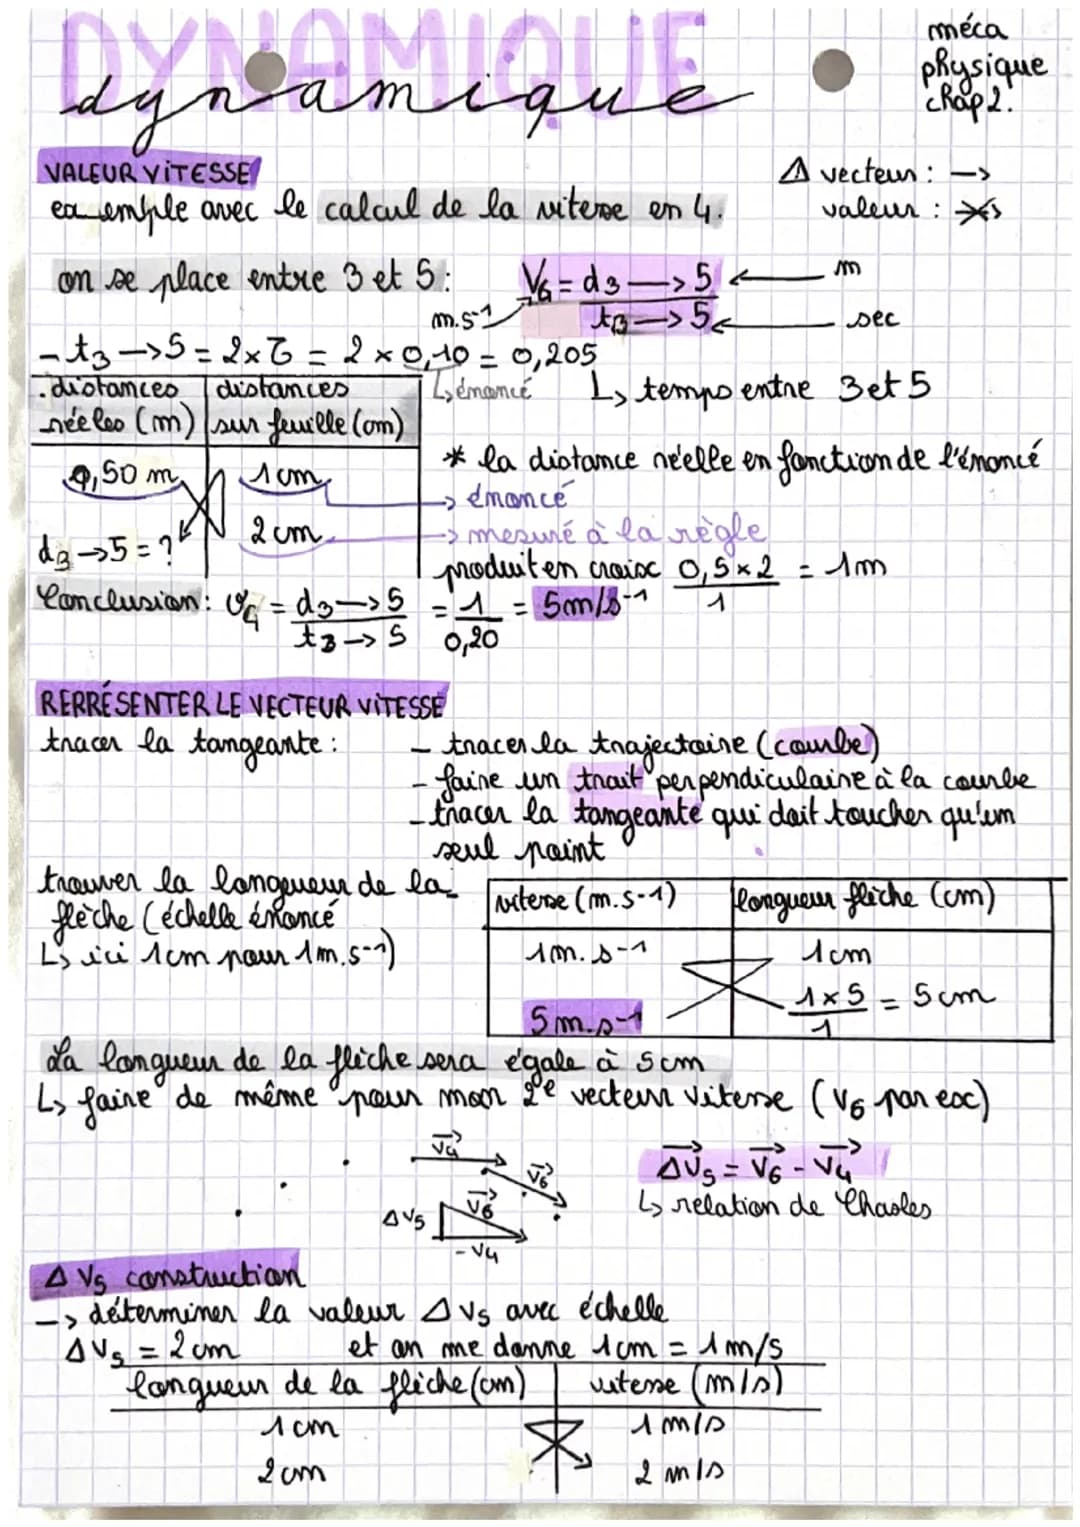 DYNAMIQUE
dynamique
méca
physique
chap 2.
VALEUR VITESSE
⚠ vecteur : →
valeur :
exemple avec le calcul de la vitesse en 4.
on se place entre 3 et 5 :
V4 = d3 → 5 ← m
m.s-1 t3 → 5 ← sec
- t3 → 5 = 2 × τ = 2 × 0,10 = 0,205
↳ énoncé ↳ temps entre 3 et 5
. distances réeles (m) | distances sur feuille (cm)
0,50 m | 1 cm
d3 → 5 = ? | 2 cm
* la distance réelle en fonction de l'énoncé
→ énoncé
→ mesuré à la règle
produit en croix 0,5 × 2 / 1 = 1m
Conclusion : v4 = d3 → 5 / t3 → 5 = 1 / 0,20 = 5m/s-1
RERRÉSENTER LE VECTEUR VITESSE
tracer la tangeante :
- tracer la trajectoire (courbe)
- faire un trait perpendiculaire à la courbe
- tracer la tangeante qui doit toucher qu'un
seul point
trouver la longueur de la
flèche (échelle énoncé
↳ ici 1cm pour 1m.s-1)
vitesse (m.s-1) | longueur flèche (cm)
1m.s-1 | 1cm
5m.s-1 | 1 × 5 / 1 = 5 cm
La longueur de la flèche sera égale à 5cm
↳ faire de même pour mon 2e vecteur vitesse (V6 par ex)
V4
V6
ΔV5
V6
- V4
ΔV5 = V6 - V4
↳ relation de Chasles
Δ V5 construction
→ déterminer la valeur Δ V5 avec échelle
ΔV5 = 2 cm et on me donne 1cm = 1 m/s
longueur de la flèche (cm) | vitesse (m/s)
1 cm | 1 m/s
2 cm | 2 m/s